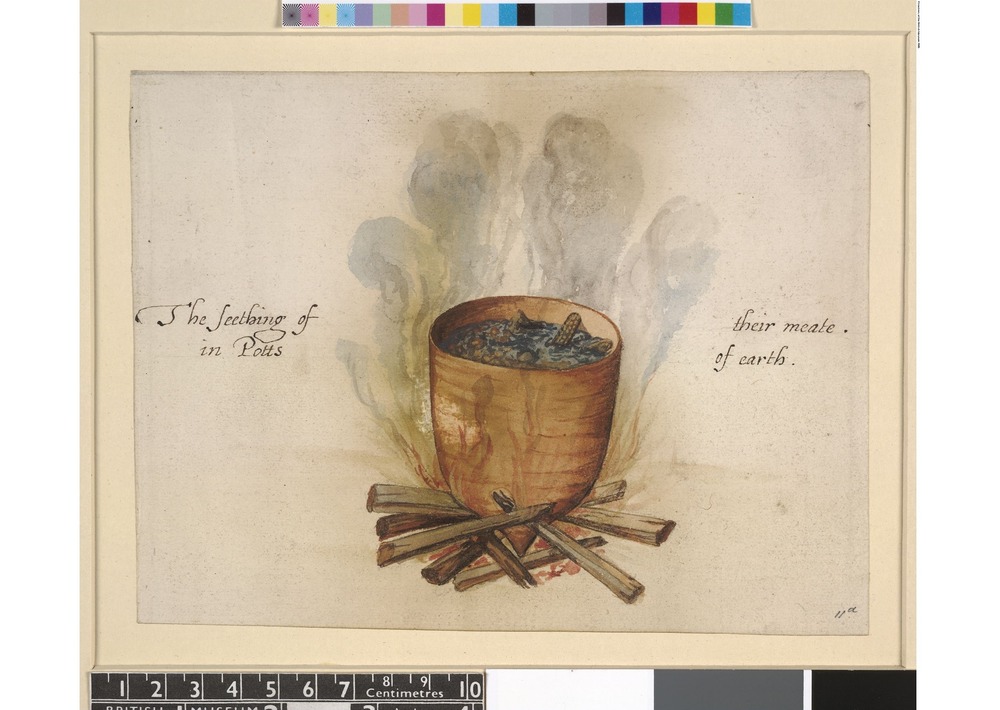 The seething of their meate.
in Potts of earth.
11a
1 2 3 4 5 6 7 8 9 10
Centimetres
BRITISH MUSEUM